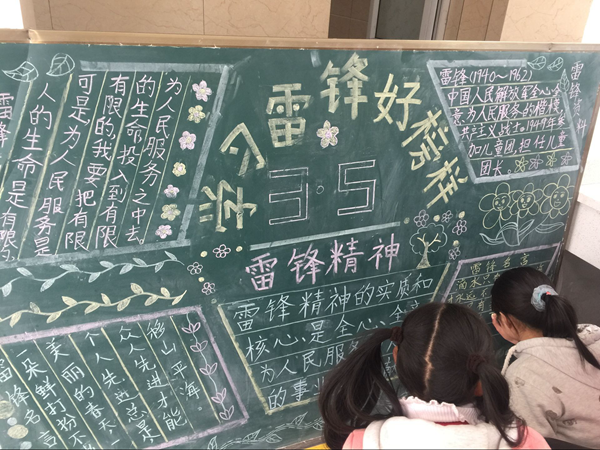 学习雷锋好榜样
3.5
雷锋
人的生命是有限
可是为人民服务是
有限的我要把有限
的生命投入到有限
为人民服务之中去。
雷锋(1940~1962)
中国人民解放军全心全
意为人民服务的楷模
共产主义战士。1949年参
加儿童团,担任儿童
团长。
雷锋资料
雷锋精神
雷锋精神的实质和
核心,是全心全
为人民服务
的事业
雷锋名言
一朵鲜打扮不
美丽的春天一
个人先进总是
众人先进才能
移山平海
雷锋名言